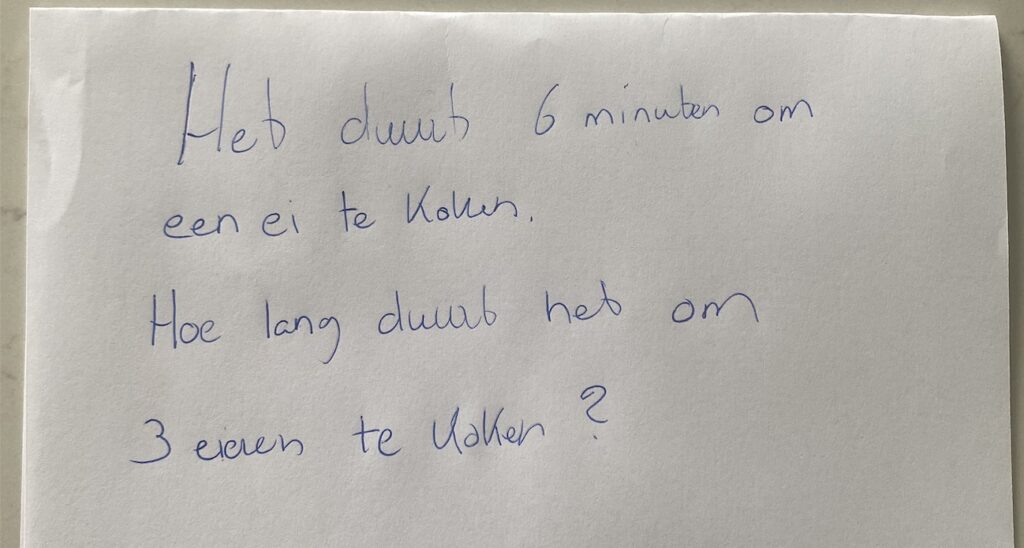 Het duurt 6 minuten om
een ei te koken.
Hoe lang duurt het om
3 eieren te koken?